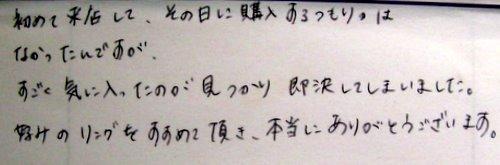 初めて来店して、その日に購入するつもりは
なかったんですが、
すごく気に入ったのが見つかり即決してしまいました。
好みのリングをすすめて頂き、本当にありがとうございます。